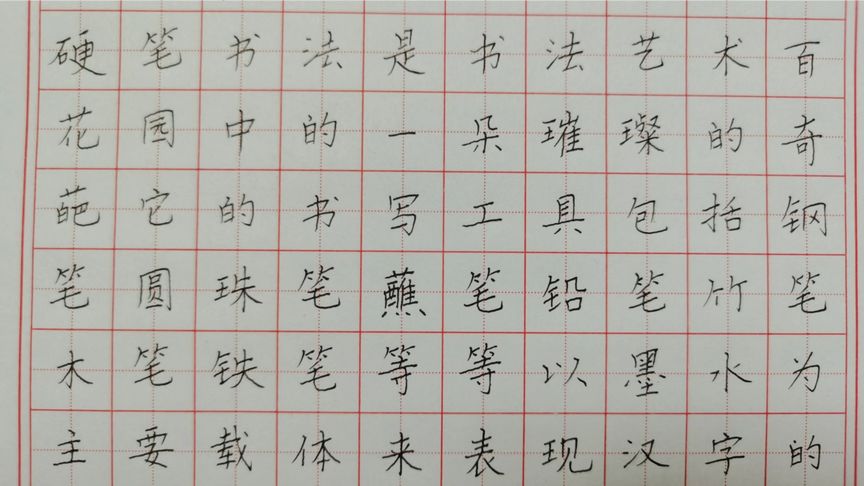 硬笔书法是书法艺术百
花园中的一朵璀璨的奇
葩它的书写工具包括钢
笔圆珠笔蘸笔铅笔竹笔
木笔铁笔等等以墨水为
主要载体来表现汉字的